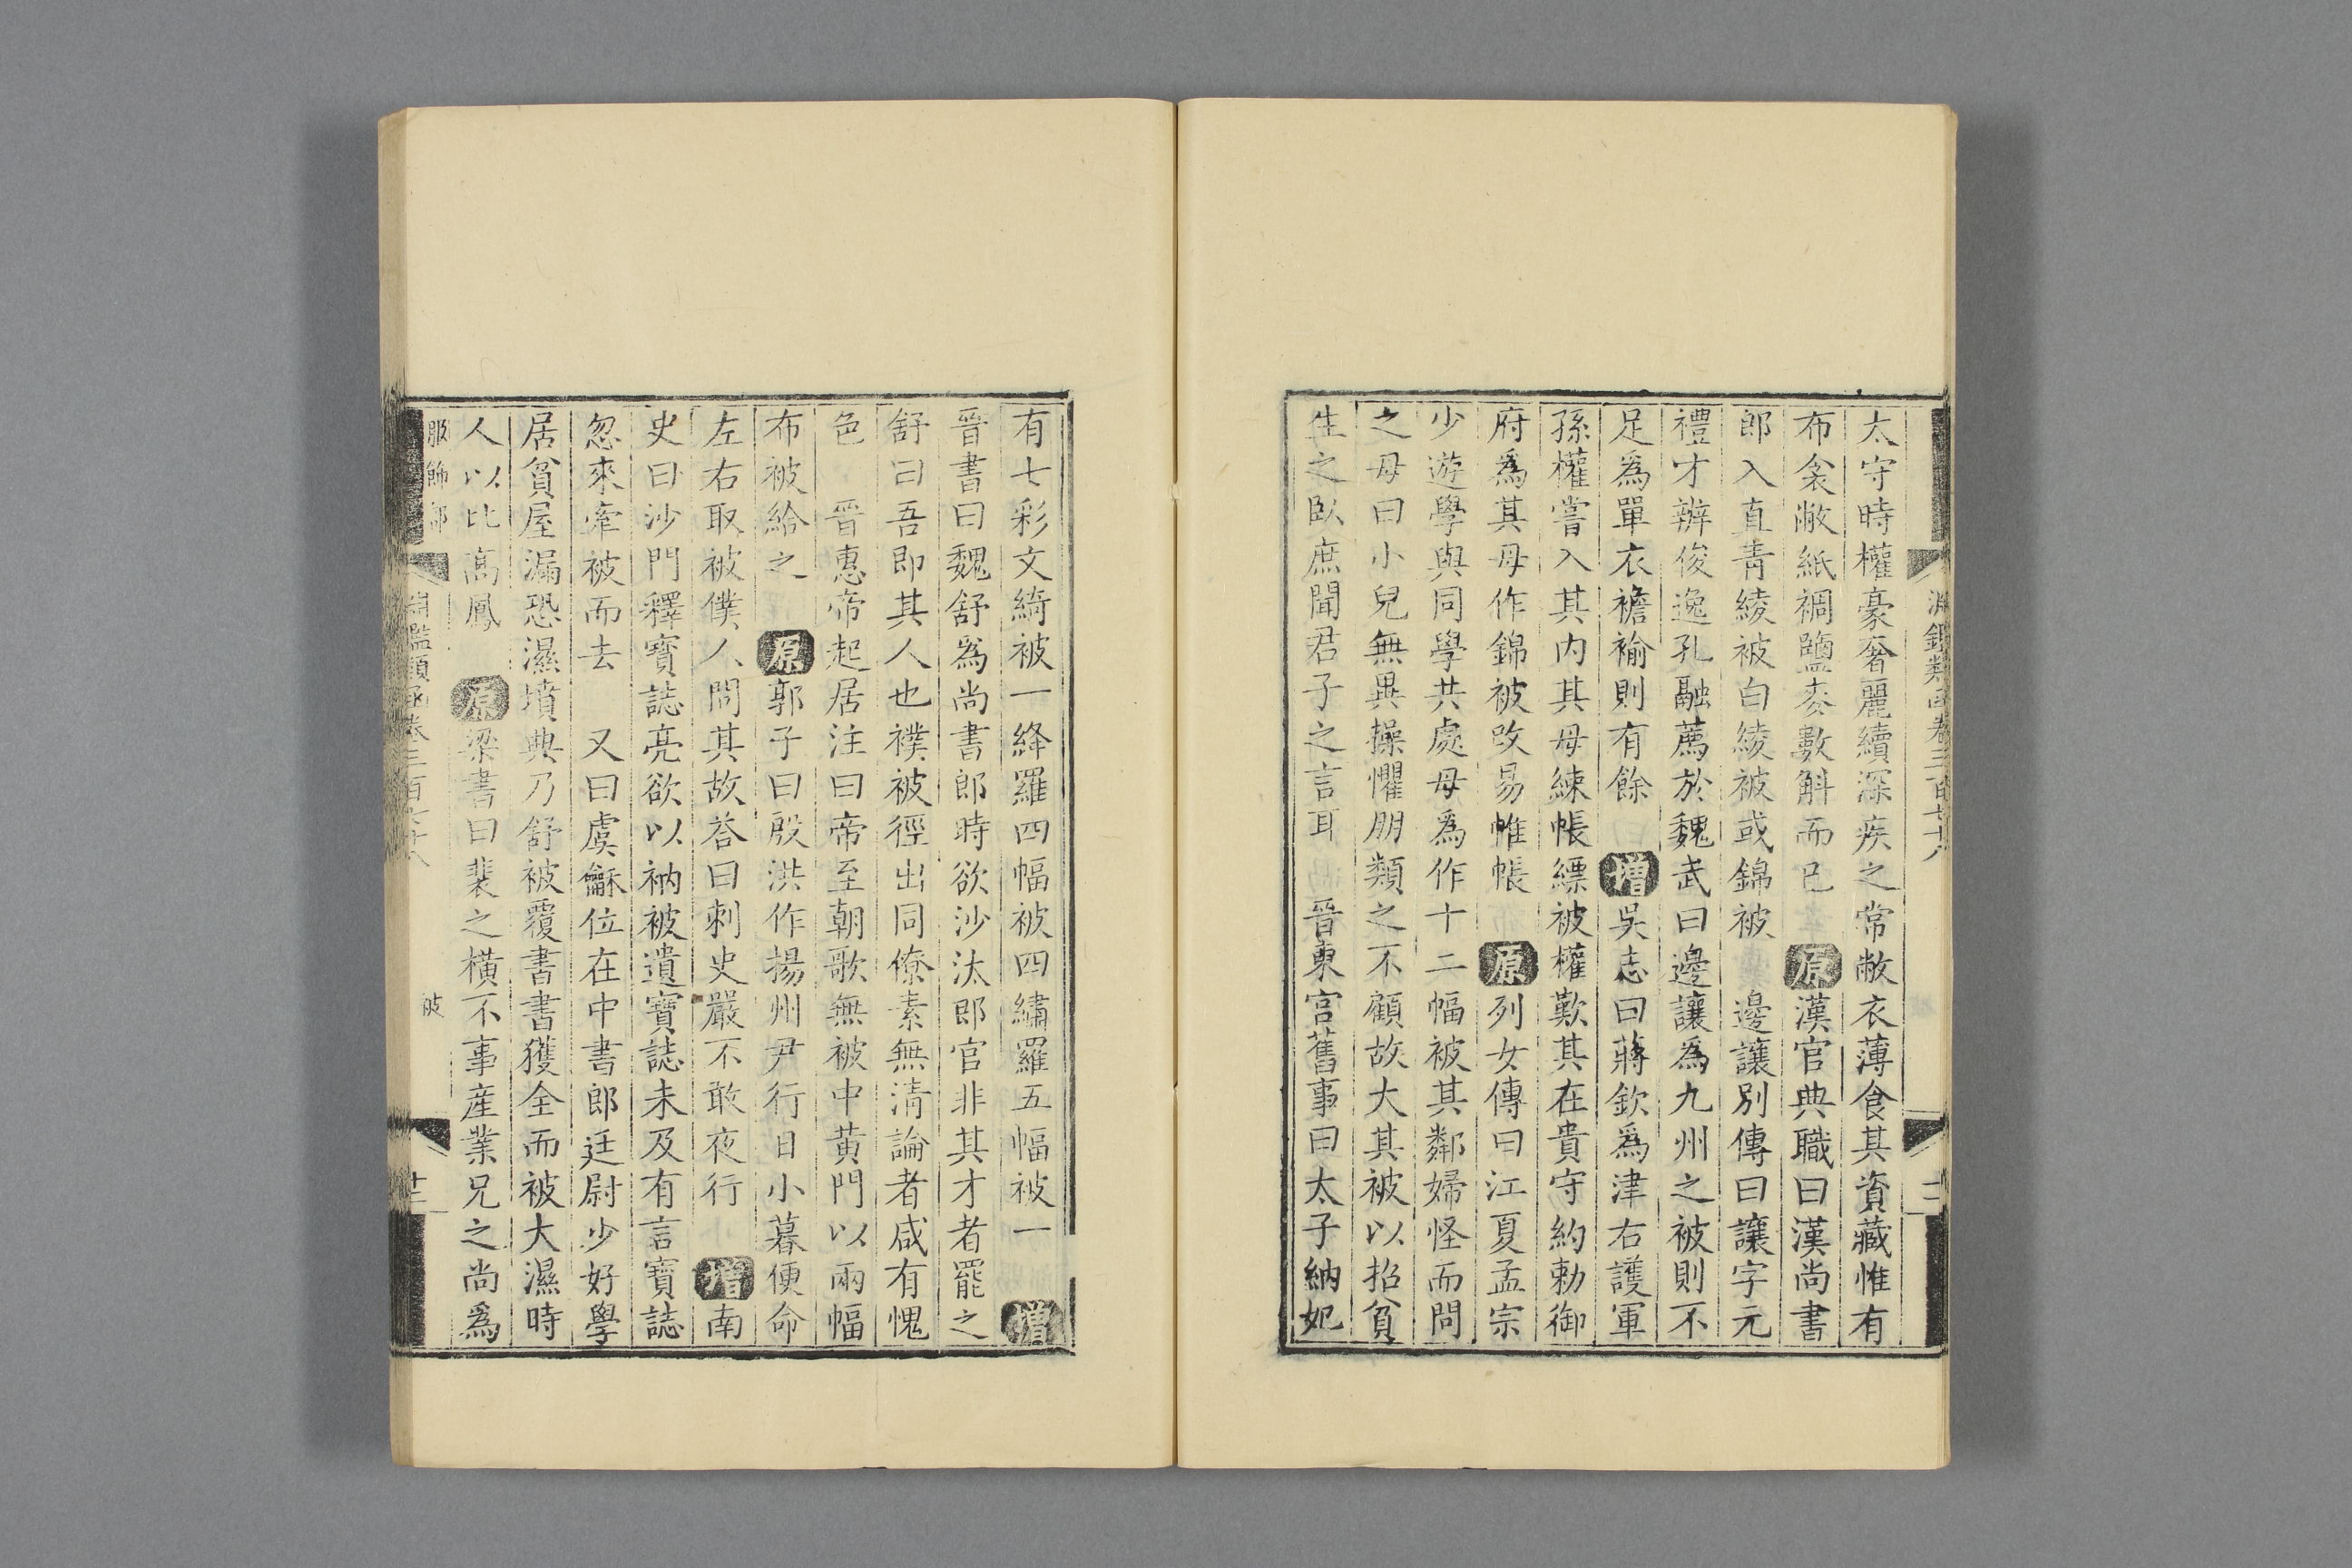 太守時權豪奢麗續深疾之常敝衣薄食其資藏惟有
布衾敝紙裯鹽麥數斛而已 原漢官典職曰漢尚書
郎入直青綾被白綾被或錦被 邊讓別傳曰讓字元
禮才辨俊逸孔融薦於魏武曰邊讓為九州之被則不
足為單衣襜褕則有餘 增吳志曰蔣欽為津右護軍
孫權嘗入其内其母練帳縹被權歎其在貴守約勅御
府為其母作錦被改易帷帳 原列女傳曰江夏孟宗
少遊學與同學共處母為作十二幅被其鄰婦怪而問
之母曰小兒無異操懼朋類之不顧故大其被以招貧
生之臥庶聞君子之言耳 晉東宮舊事曰太子納妃
有七彩文綺被一絳羅四幅被四繡羅五幅被一 增
晉書曰魏舒為尚書郎時欲沙汰郎官非其才者罷之
舒曰吾即其人也襆被徑出同僚素無清論者咸有愧
色 晉惠帝起居注曰帝至朝歌無被中黃門以兩幅
布被給之 原郭子曰殷洪作揚州尹行日小暮便命
左右取被僕人問其故荅曰刺史嚴不敢夜行 增南
史曰沙門釋寶誌亮欲以衲被遺寶誌未及有言寶誌
忽來牽被而去 又曰虞龢位在中書郎廷尉少好學
居貧屋漏恐濕墳典乃舒被覆書書獲全而被大濕時
人以比高鳳 原梁書曰裴之橫不事産業兄之尚為
服飾部 淵鑑類函卷三百七十八 被 十二